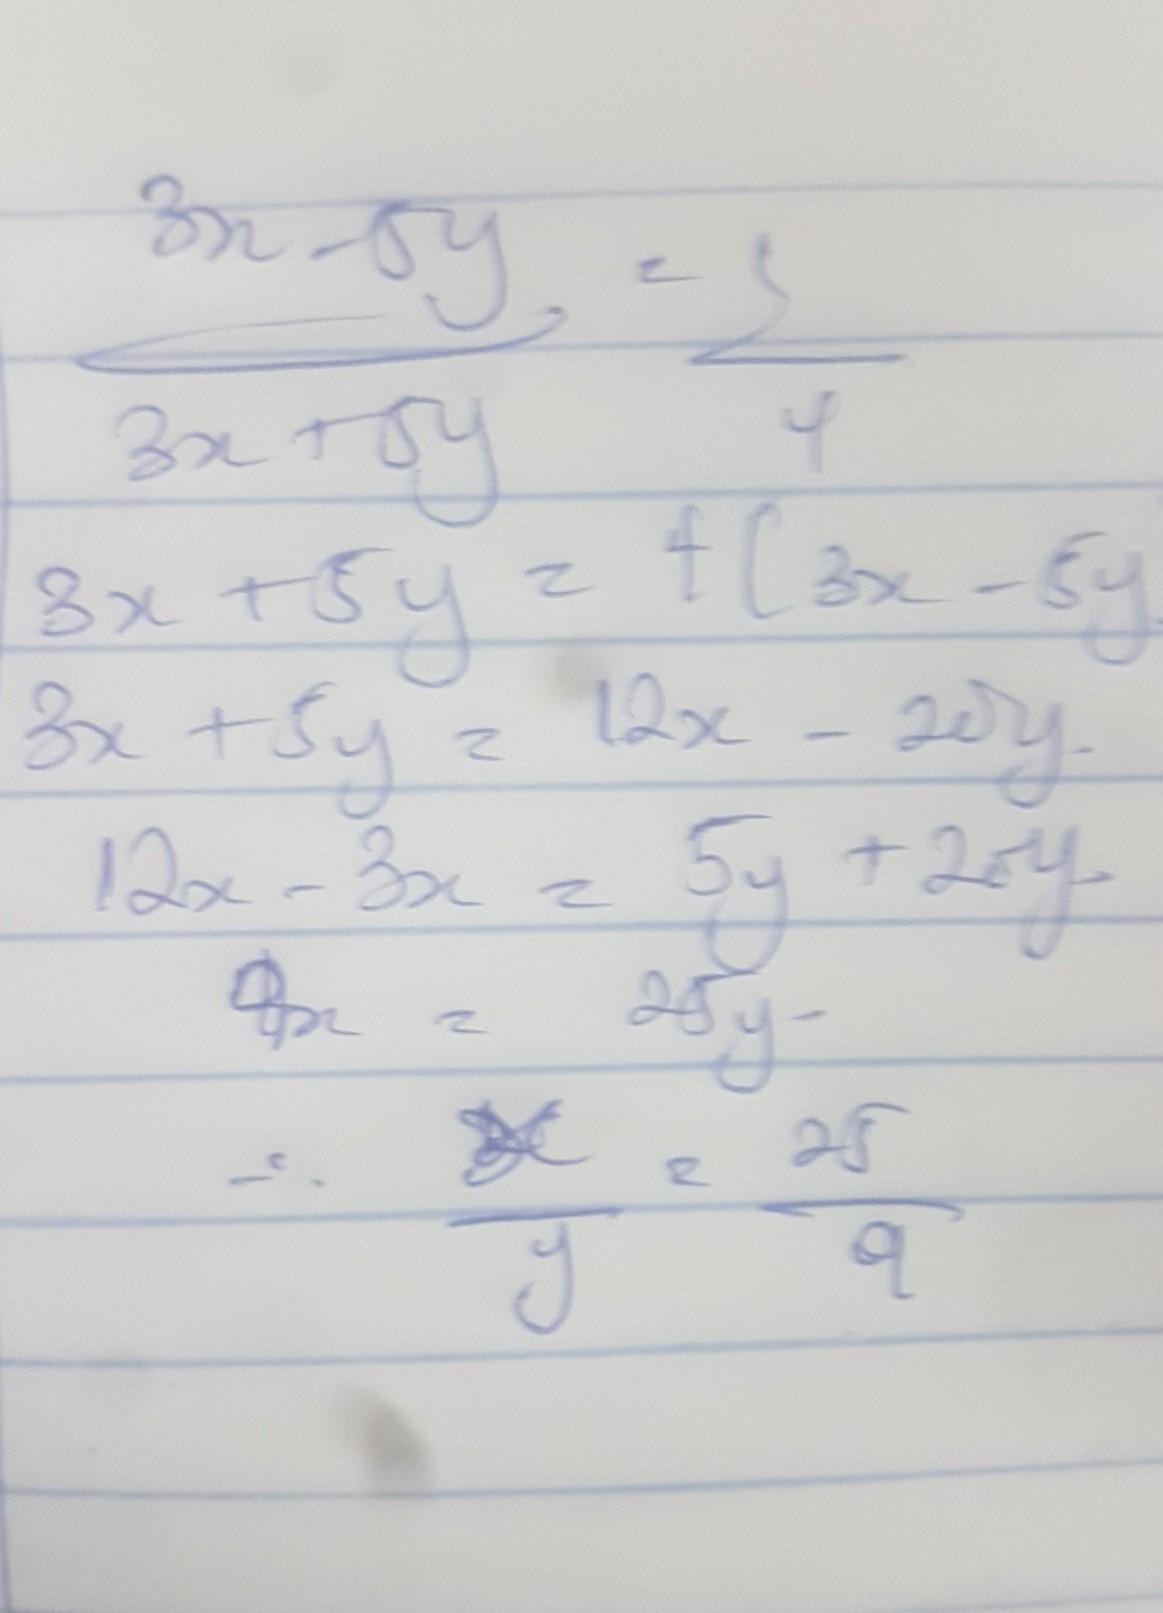 3x - 5y / 3x + 5y = 1 / 4
3x + 5y = 4(3x - 5y
3x + 5y = 12x - 20y
12x - 3x = 5y + 20y
9x = 25y
∴ x / y = 25 / 9